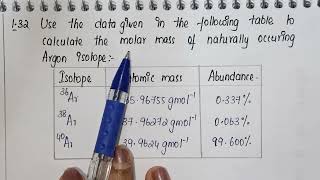 1.32 Use the data given in the following table to
calculate the molar mass of naturally occuring
Argon isotope:-
Isotope tomic mass Abundance.
36Ar 35.96755 gmol-1 0.337%
38Ar 37.96272 gmol-1 0.063%
40Ar 39.9624 gmol-1 99.600%